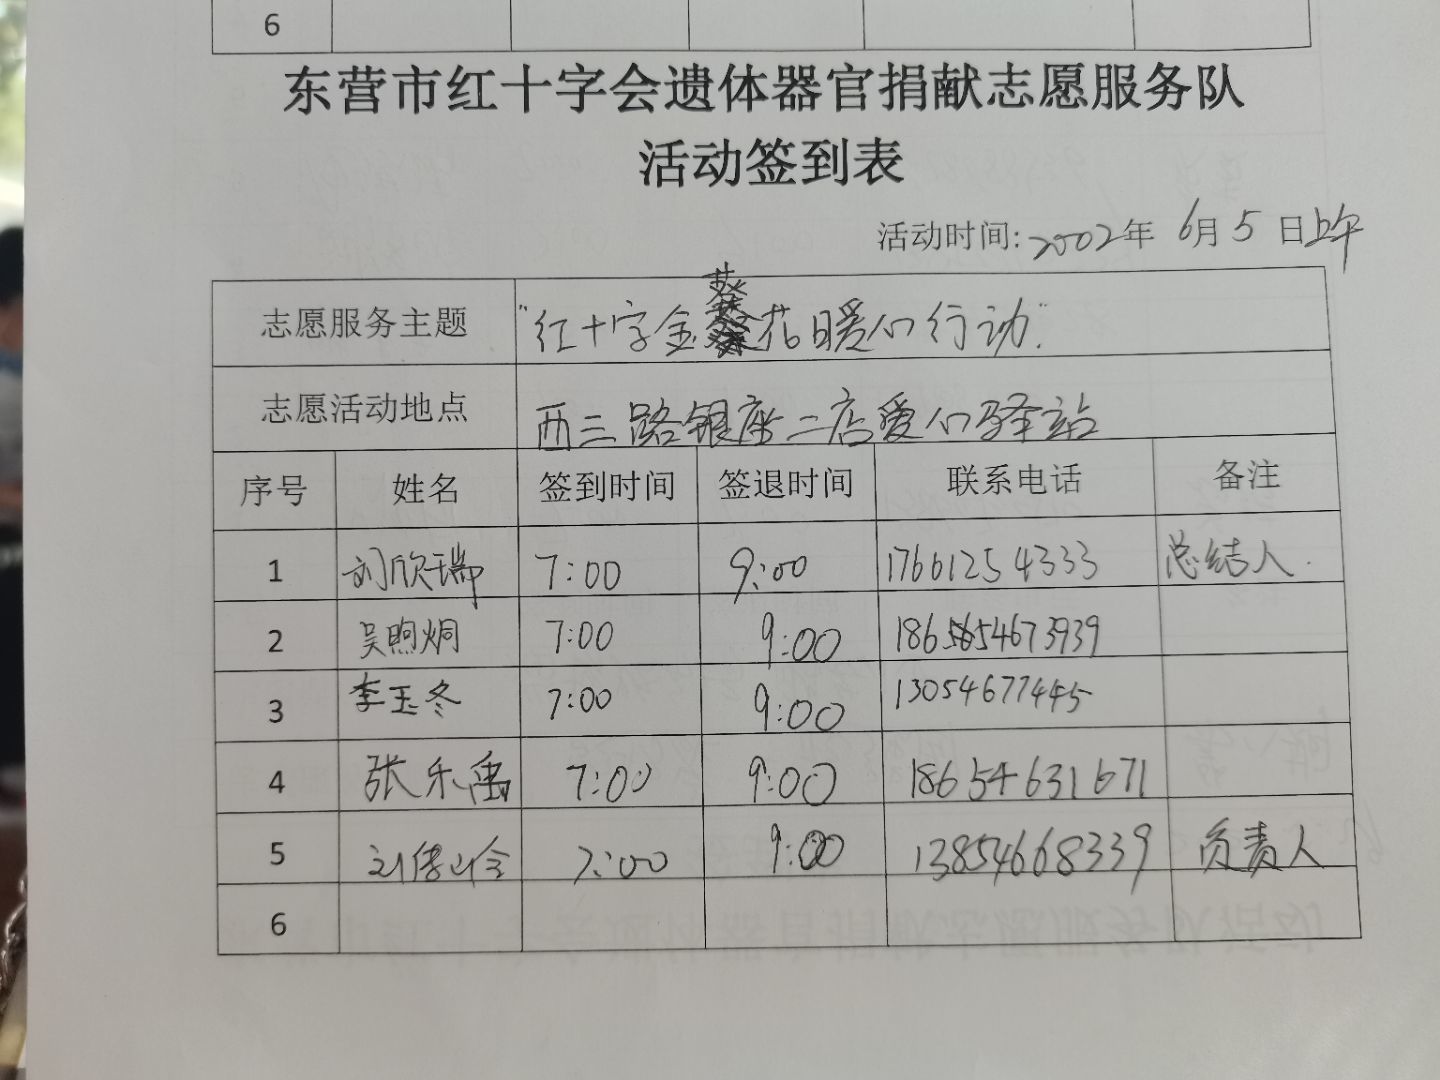 6
东营市红十字会遗体器官捐献志愿服务队
活动签到表
活动时间:2002年 6月5日上午
志愿服务主题 "红十字金葵花暖心行动"
志愿活动地点 西三路银座二店爱心驿站
序号 姓名 签到时间 签退时间 联系电话 备注
1 刘欣瑞 7:00 9:00 17661254333 总结人.
2 吴煦炯 7:00 9:00 7:00
3 李玉冬 7:00 9:00 13054677445
4 张乐禹 7:00 9:00 18654631671
5 7:00 9:00 13854668339 负责人
6